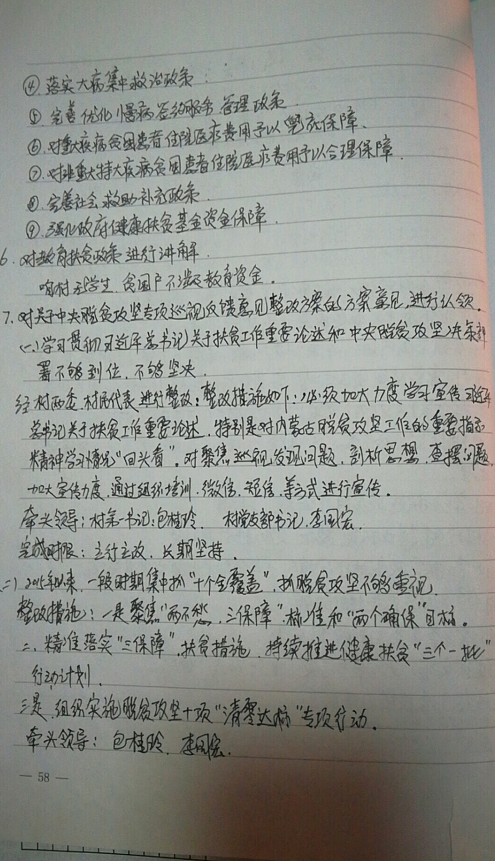 ④ 落实大病集中救治政策
⑤ 完善优化慢病签约服务管理政策
⑥ 对重大疾病贫困患者住院医疗费用予以兜底保障.
⑦ 对非重大特大疾病贫困患者住院医疗费用予以合理保障.
⑧ 完善社会救助补充政策
⑨ 强化政府健康扶贫基金资金保障.
6. 对教育扶贫政策进行讲解
咱村无学生, 贫困户不涉及教育资金.
7. 对关于中央脱贫攻坚专项巡视反馈意见整改方案的方案意见进行认领.
(一) 学习贯彻习近平总书记关于扶贫工作重要论述和中央脱贫攻坚决策部
署不够到位, 不够坚决
经村两委, 村民代表进行整改: 整改措施如下: 必须加大力度学习宣传习近平
总书记关于扶贫工作重要论述, 特别是对内蒙古脱贫攻坚工作的重要指示
精神学习情况"回头看". 对聚焦巡视发现问题, 剖析思想, 查摆问题,
加大宣传力度, 通过组织培训, 微信, 短信, 等方式进行宣传.
牵头领导: 村第一书记: 包桂玲. 村党支部书记: 李国宏.
完成时限: 立行立改, 长期坚持.
(二) 2015年以来, 一段时期集中抓"十个全覆盖", 抓脱贫攻坚不够重视.
整改措施: 一是聚焦"两不愁, 三保障"标准和"两个确保"目标.
二. 精准落实"三保障"扶贫措施, 持续推进健康扶贫"三个一批"
行动计划.
三是, 组织实施脱贫攻坚十项"清零达标"专项行动.
牵头领导: 包桂玲, 李国宏.
— 58 —